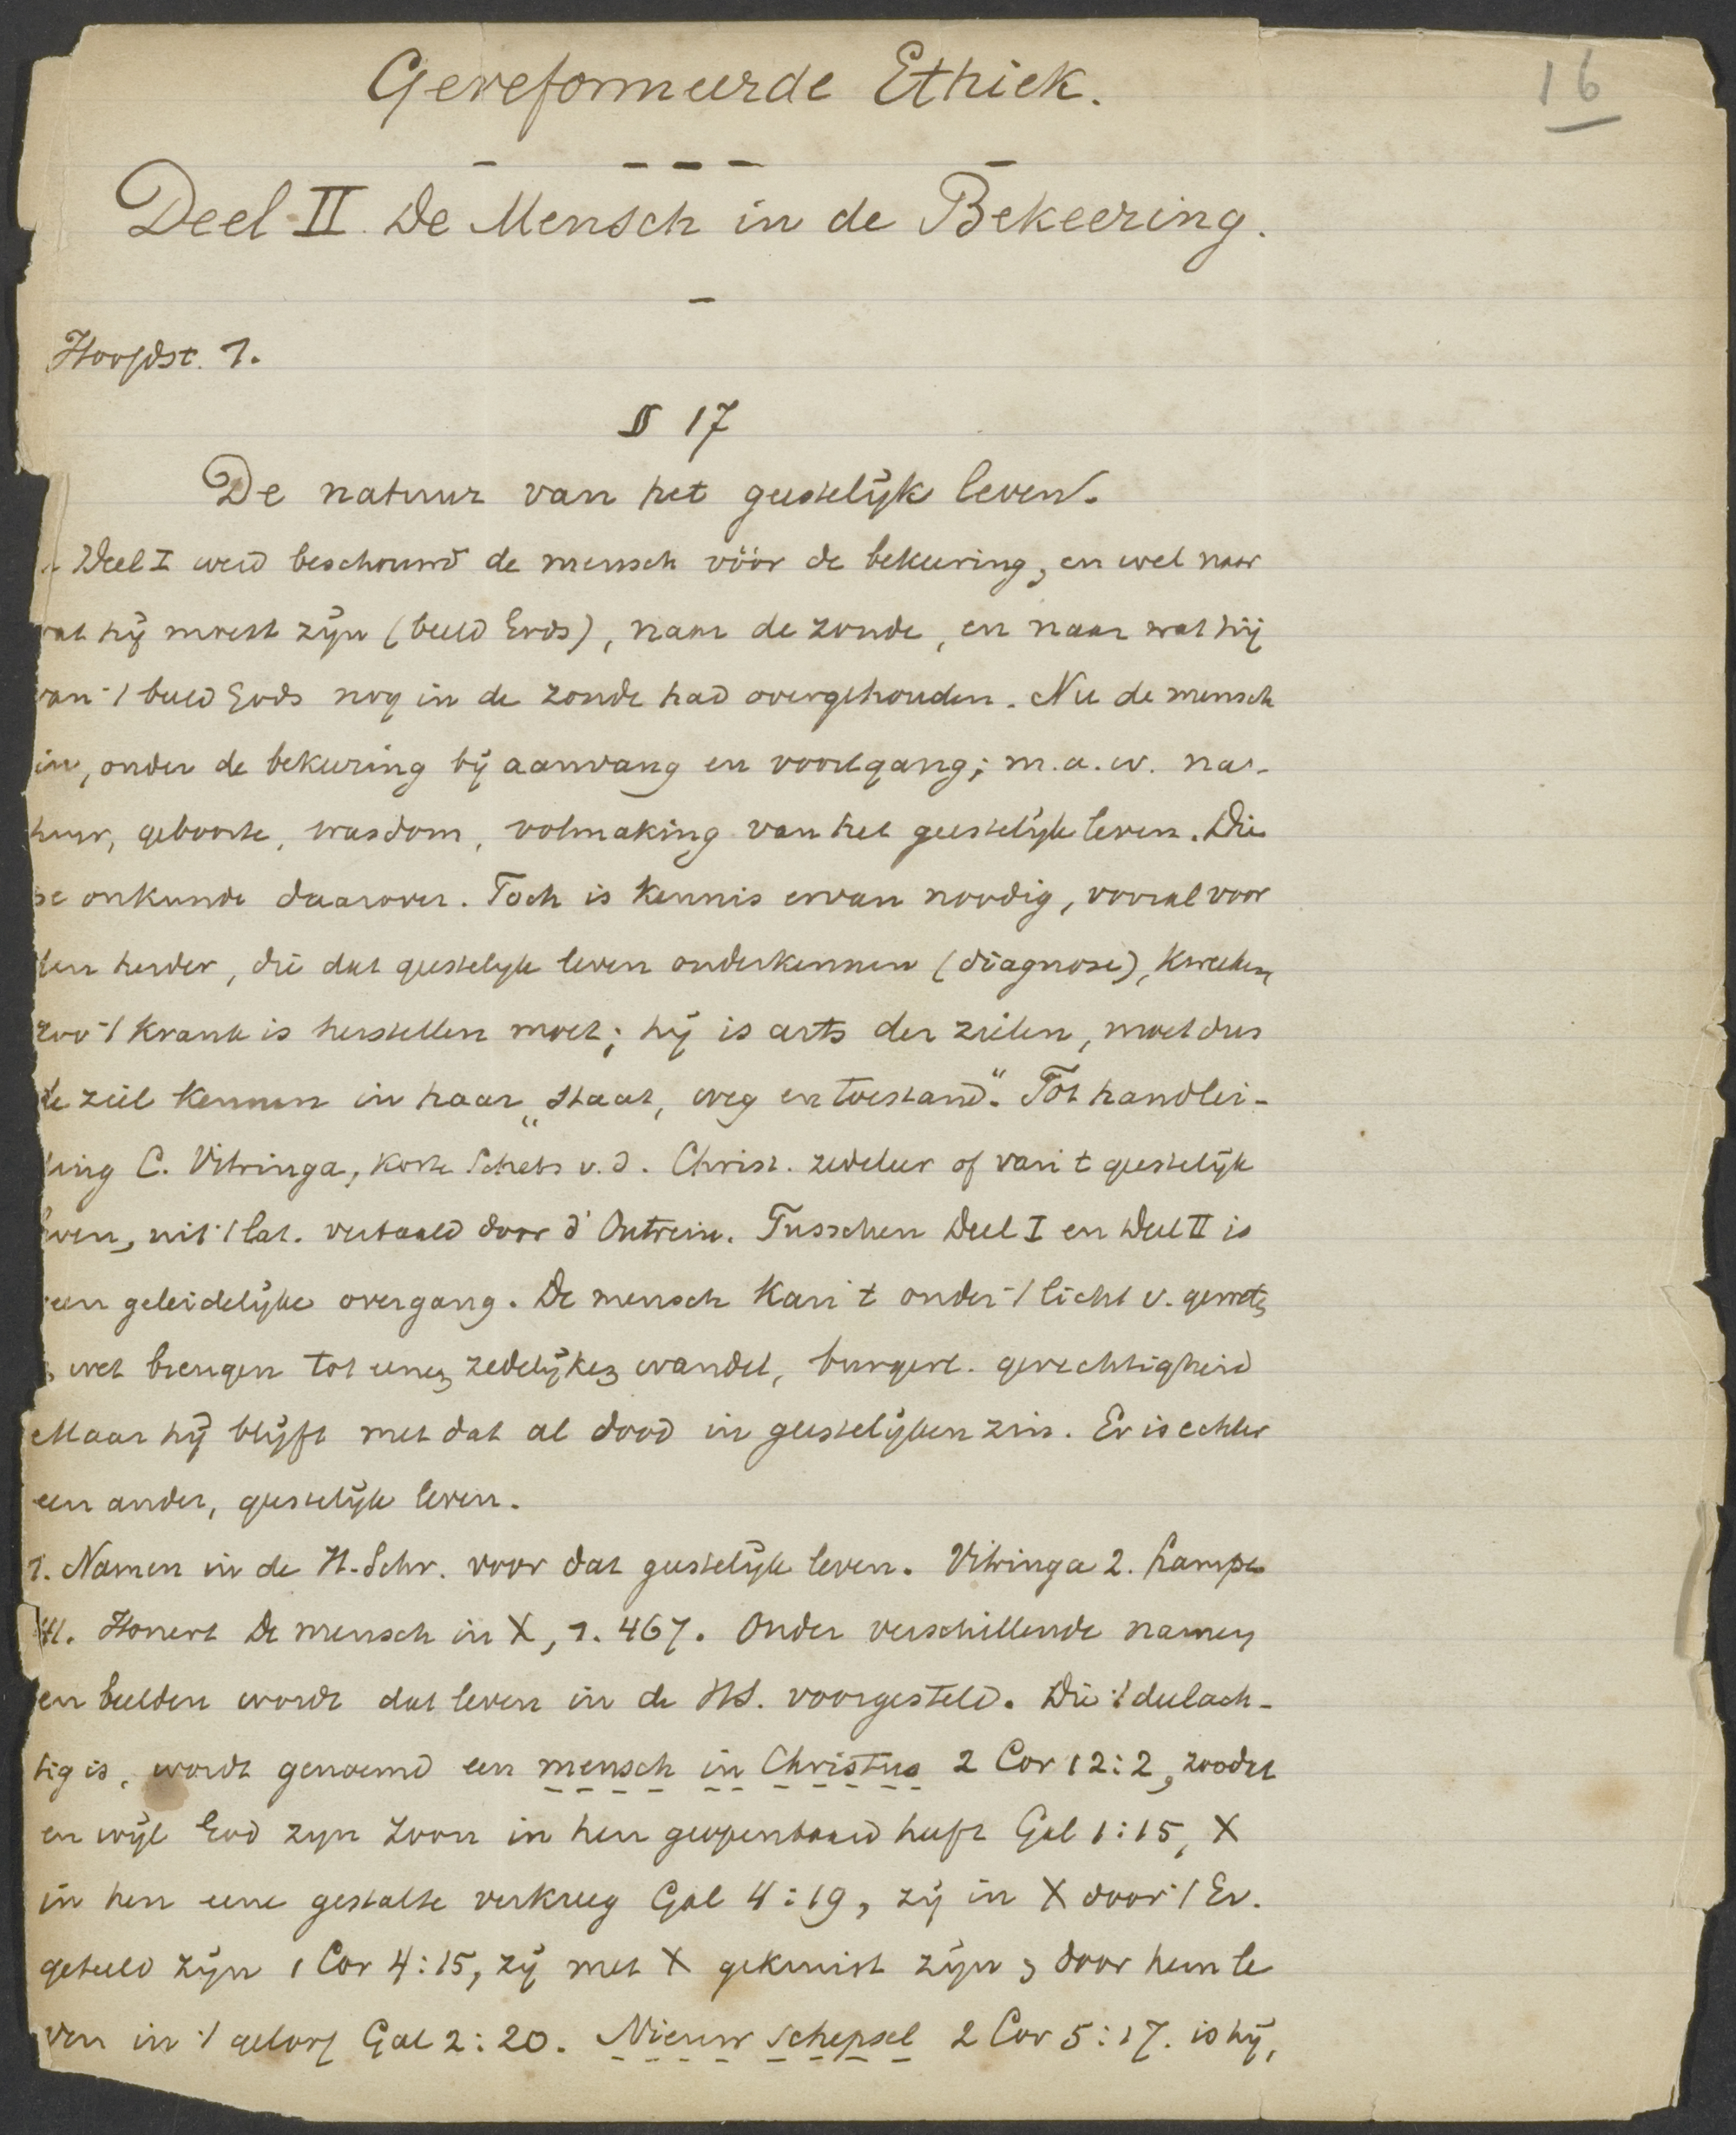 Gereformeerde Ethiek.
16
Deel II. De Mensch in de Bekeering.
Hoofdst. 1.
§ 17
De natuur van het geestelijk leven.
Deel I werd beschouwd de mensch vóór de bekeering, en wel naar
wat hij moest zijn (beeld Gods), naar de zonde, en naar wat hij
van 't beeld Gods nog in de zonde had overgehouden. Nu de mensch
in, onder de bekeering bij aanvang en voortgang; m.a.w. na-
tuur, geboorte, wasdom, volmaking van het geestelijk leven. Die
se onkunde daarover. Toch is kennis ervan noodig, vooral voor
den herder, die dat geestelijk leven onderkennen (diagnose), kweeken,
zoo 't krank is herstellen moet; hij is arts der zielen, moet dus
de ziel kennen in haar „staat, weg en toestand". Tot handlei-
ding C. Vitringa, Korte Schets v. d. Christ. zedeleer of van 't geestelijk
leven, uit 't Lat. vertaald door d'Outrein. Tusschen Deel I en Deel II is
een geleidelijke overgang. De mensch kan 't onder 't licht v. geweten
, wet brengen tot eenen zedelijken wandel, burgerl. gerechtigheid
Maar hij blijft met dat al dood in geestelijken zin. Er is echter
een ander, geestelijk leven.
1. Namen in de H. Schr. voor dat geestelijk leven. Vitringa 2. Lampe
H. Honert De mensch in X, 1. 467. Onder verschillende namen
en beelden wordt dat leven in de HS. voorgesteld. Die 't deelach-
tig is, wordt genoemd een mensch in Christus 2 Cor 12:2, zoodat
en wijl God zijn Zoon in hen geopenbaard heeft Gal 1:15, X
in hen eene gestalte verkreeg Gal 4:19, zij in X door 't Ev.
geteeld zijn 1 Cor 4:15, zij met X gekruist zijn, door hem le
ven in 't geloof Gal 2:20. Nieuw schepsel 2 Cor 5:17. is hij,